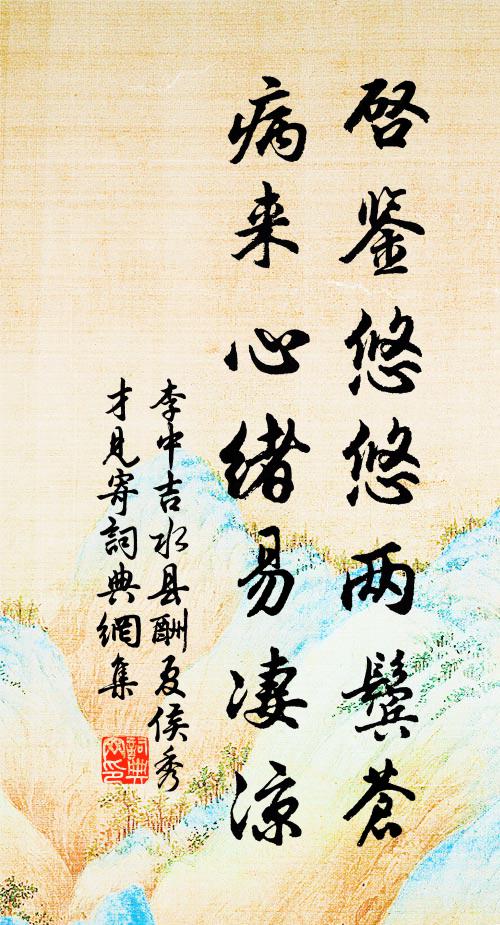 启鉴悠悠两鬓苍
病来心绪易凄凉
李中吉水县酬夏侯秀
才见寄词典網集